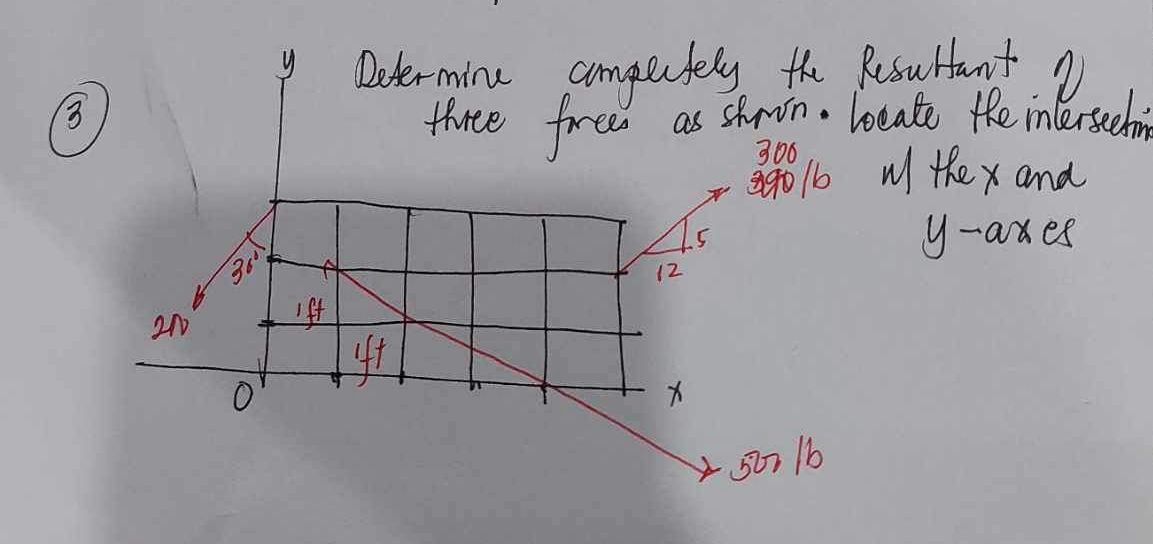 y Determine completely the Resultant of
③ three forces as shown. locate the intersection
300
390 lb w/ the x and
5 y-axes
12
30°
1ft
1ft
O x
500 lb